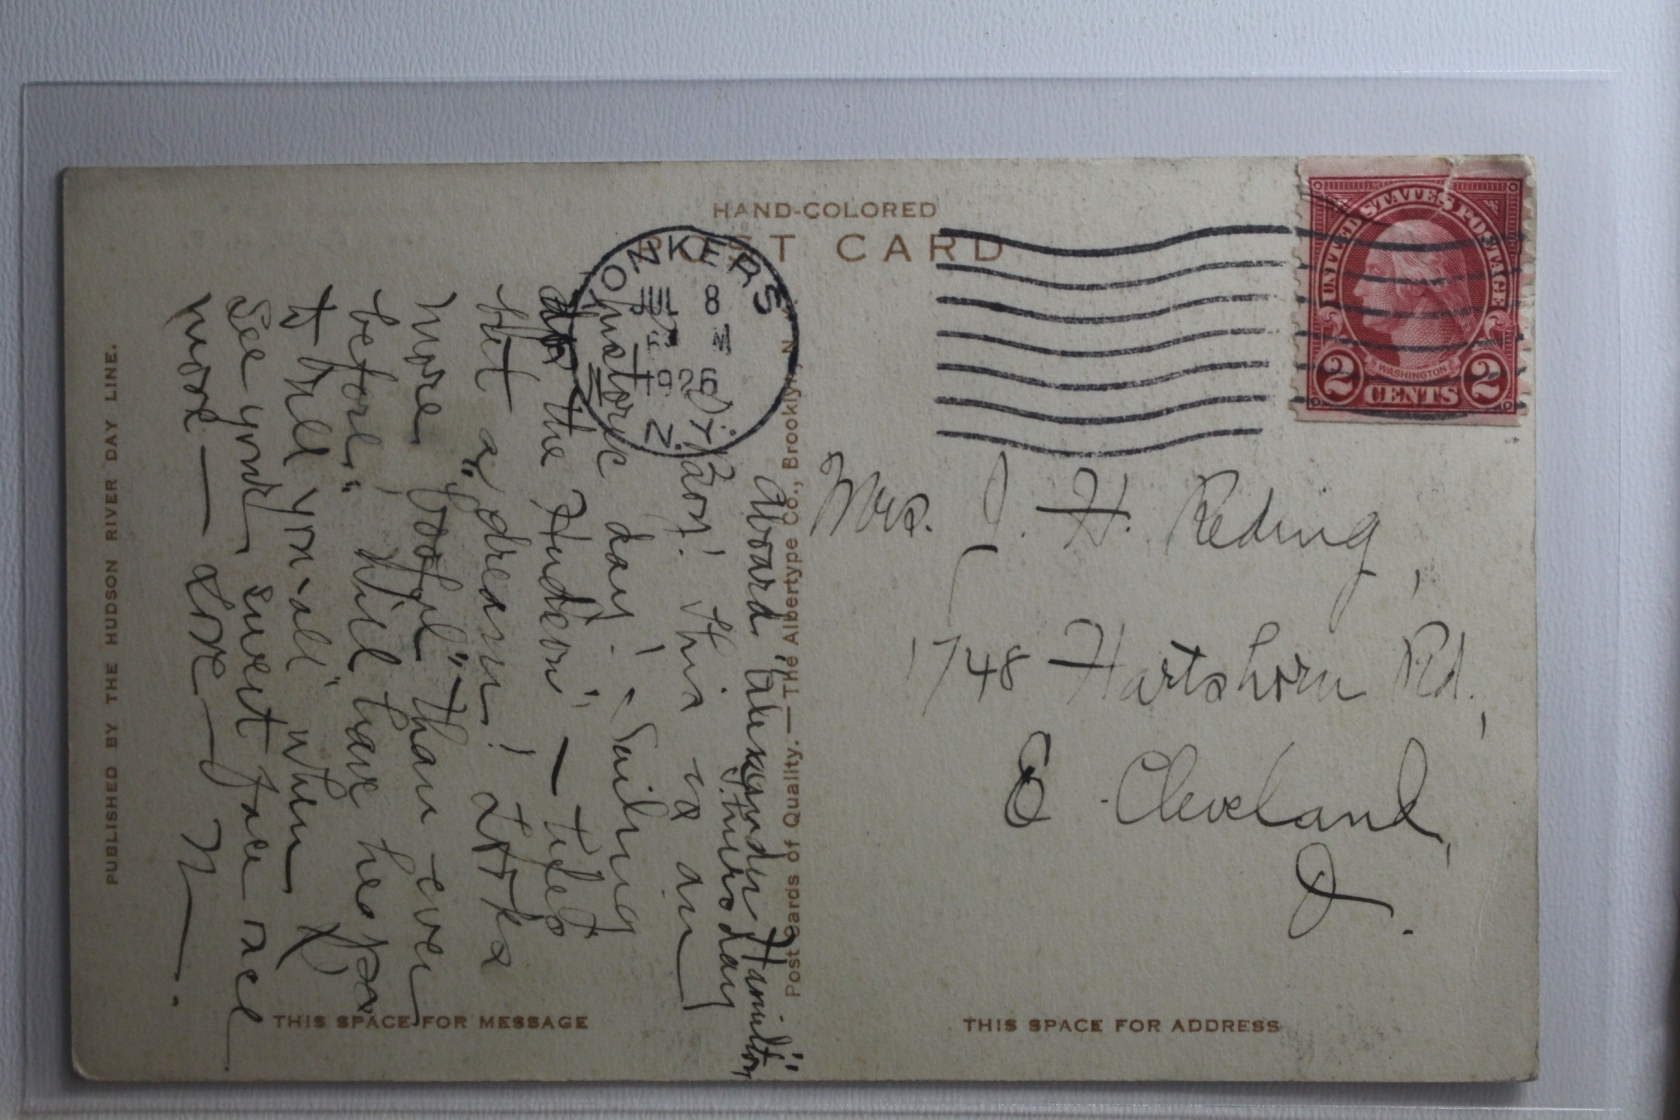 HAND-COLORED
POST CARD
YONKERS
JUL 8
M
1926
N.
UNITED STATES POSTAGE
WASHINGTON
2 CENTS 2
Aboard "Alexander Hamilton"
Thursday
Boy! This is an
historic day! "Sailing
the Hudson" —
but a dream! Looks
more "bootful" than ever
before." Will have heaps
to tell you-all" when I
see your sweet face once
more — Love — N — .
Mrs. J. H. Reding,
1748 Hartshorn Rd.,
E. Cleveland,
O.
Post Cards of Quality. — The Albertype Co., Brooklyn, N.
PUBLISHED BY THE HUDSON RIVER DAY LINE.
THIS SPACE FOR MESSAGE
THIS SPACE FOR ADDRESS